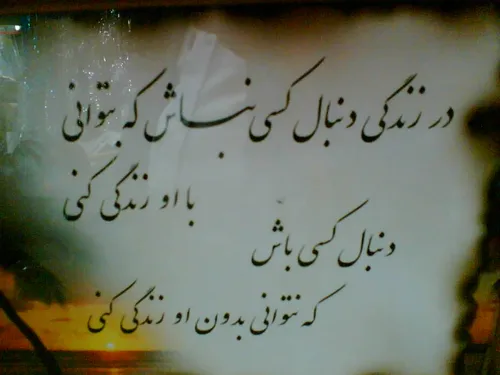 در زندگی دنبال کسی نباش که بتوانی
با او زندگی کنی
دنبال کسی باش
که نتوانی بدون او زندگی کنی